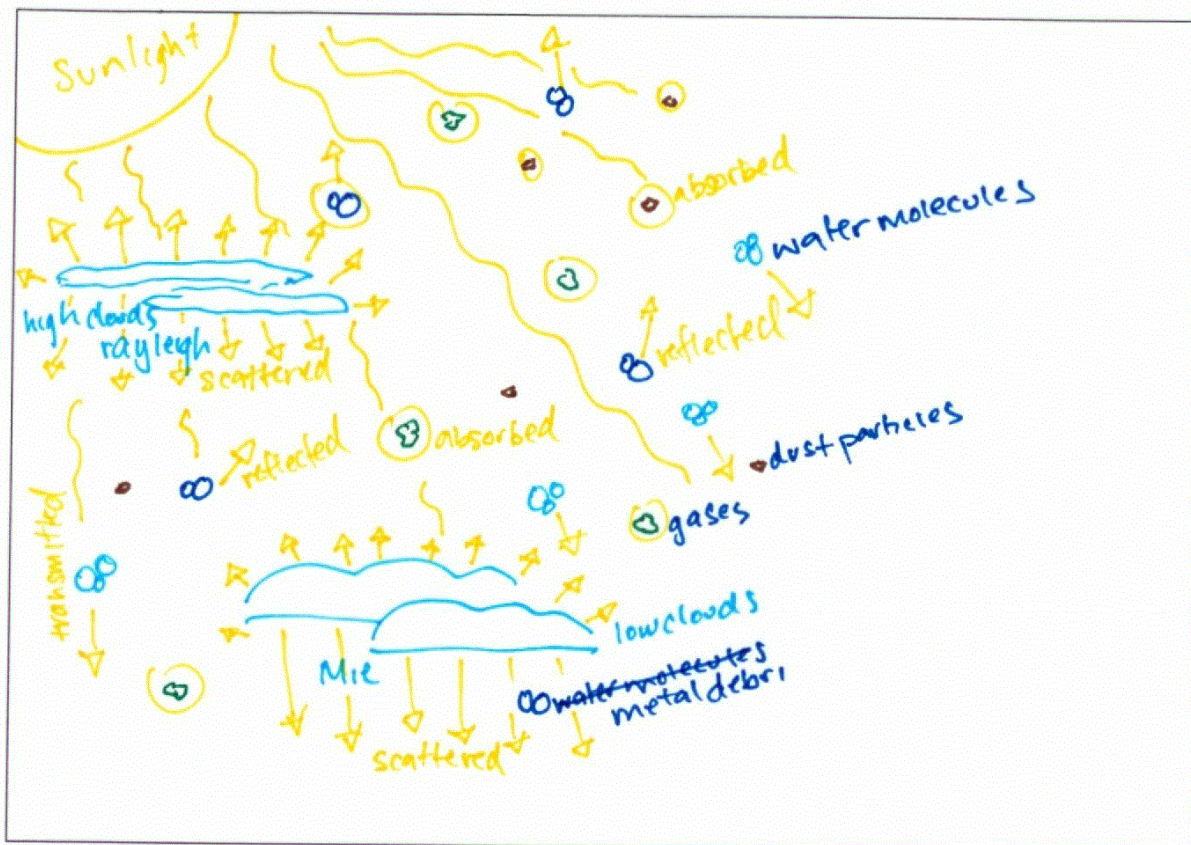 Sunlight
absorbed
water molecules
high clouds
rayleigh
scattered
reflected
reflected
absorbed
dust particles
transmitted
gases
low clouds
Mie
water molecules
metal debri
scattered